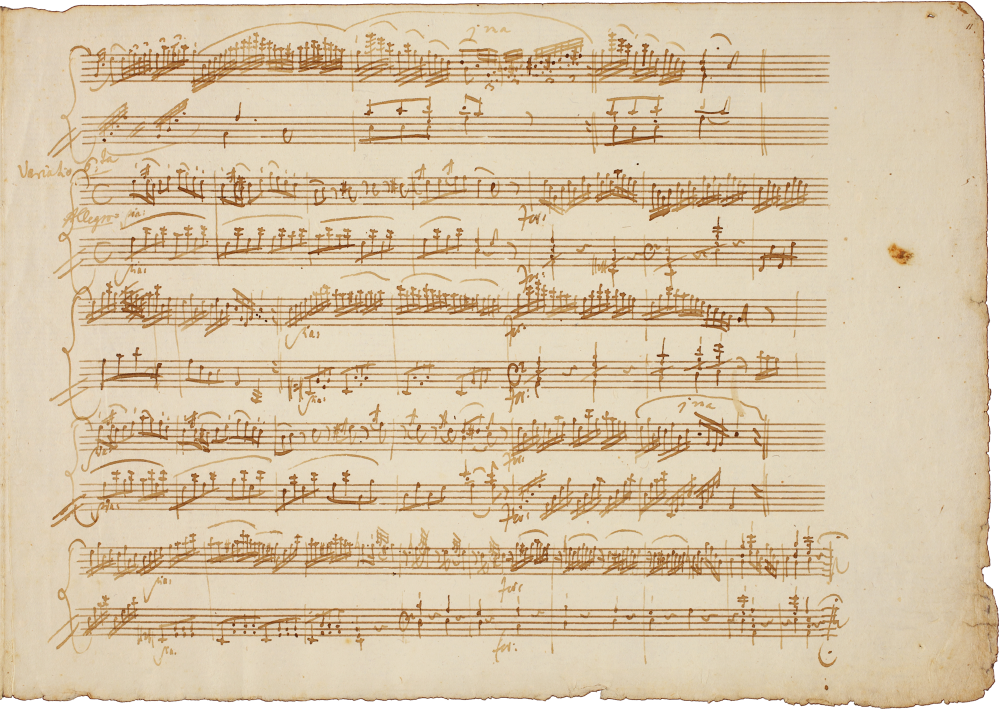 8va
Variatio 6:ta
Allegro pia:
for:
pia:
for:
pia:
for:
pia:
for:
8va
pia:
for:
pia:
for:
pia:
for:
pia:
for: